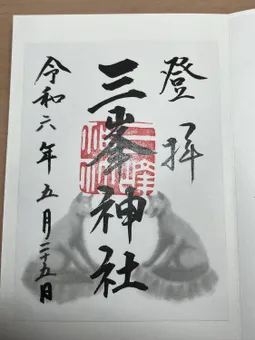 登拝
三峯神社
令和六年五月二十五日